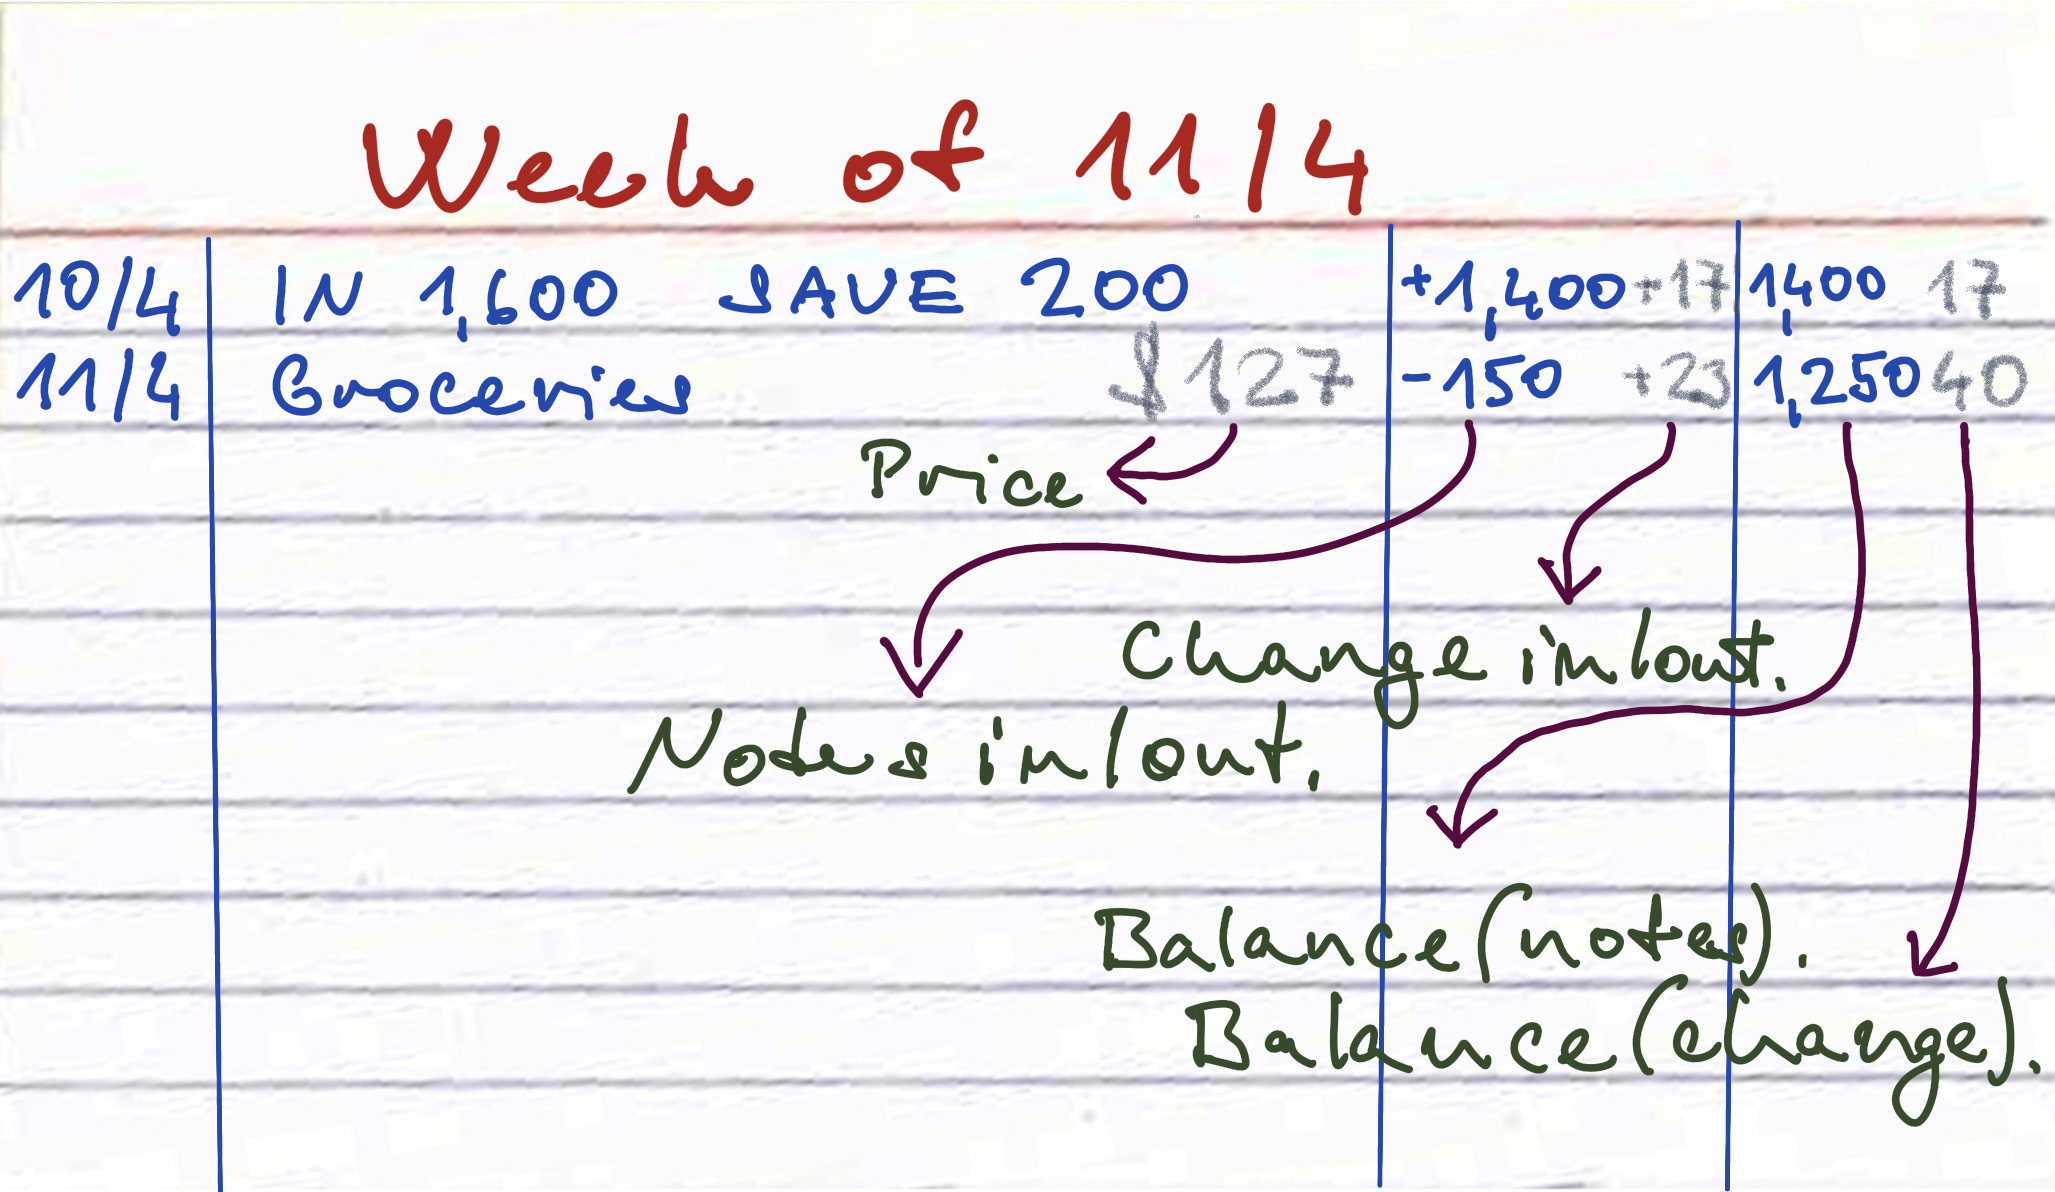 Week of 11/4
10/4 IN 1,600 SAVE 200 +1,400 +17 1,400 17
11/4 Groceries $127 -150 +23 1,250 40
Price
Change in/out.
Notes in/out.
Balance (notes).
Balance (change).